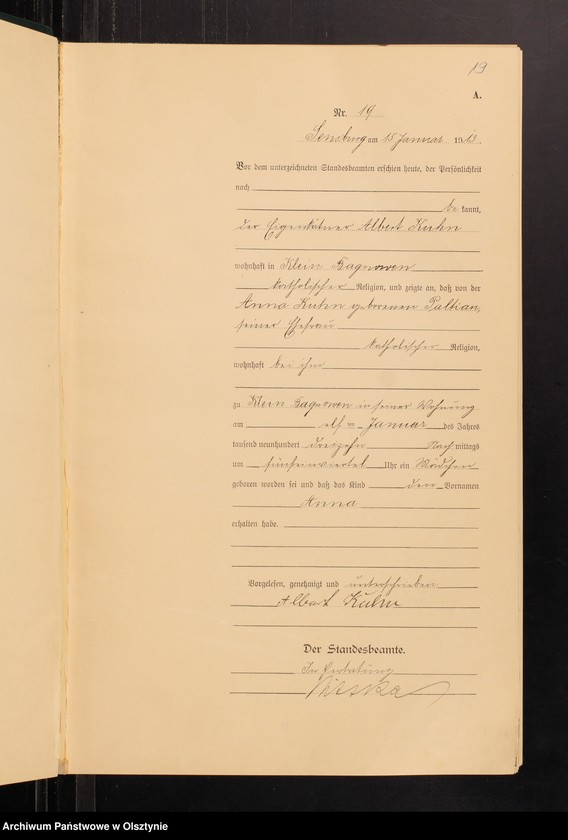 19
A.
Nr. 19
Sensburg am 15 Januar 1913.
Vor dem unterzeichneten Standesbeamten erschien heute, der Persönlichkeit
nach
be kannt,
der Eigenkätner Albert Kuhn
wohnhaft in Klein Bagnowen
katholischer Religion, und zeigte an, daß von der
Anna Kuhn geborenen Palkian,
seiner Ehefrau
katholischer Religion,
wohnhaft bei ihm
zu Klein Bagnowen in seiner Wohnung
am elf ten Januar des Jahres
tausend neunhundert dreizehn Nach mittags
um fünfeinviertel Uhr ein Mädchen
geboren worden sei und daß das Kind den Vornamen
Anna
erhalten habe.
Vorgelesen, genehmigt und unterschrieben
Albert Kuhn
Der Standesbeamte.
In Vertretung
Archiwum Państwowe w Olsztynie